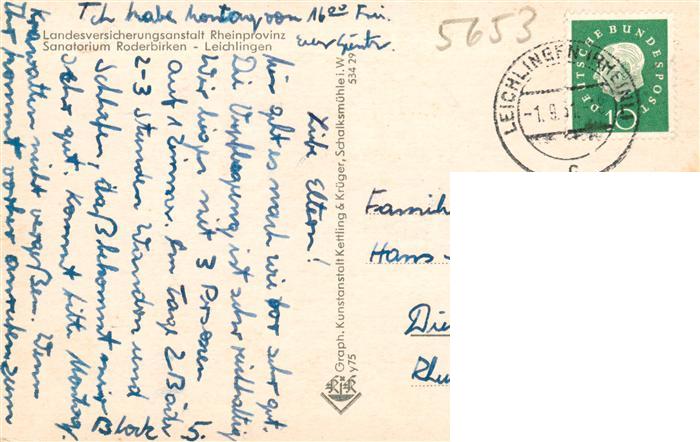 Ich habe Montag von 16²⁰ frei.
euer Günter.
Landesversicherungsanstalt Rheinprovinz
Sanatorium Roderbirken - Leichlingen
5653
DEUTSCHE BUNDESPOST
10
LEICHLINGEN (RHEINL)
-1.9.
c
Liebe Eltern!
hier geht es nach wie vor sehr gut.
Die Verpflegung ist sehr reichhaltig
Wir liegen mit 3 Personen
auf 1 Zimmer. Am Tage 2 Bäder
2-3 Stunden Wandern und
Schlafen, daß bekommt mir
sehr gut. Kommt bitte Montag.
Krawatten nicht vergeßen. Wenn
Ihr kommt vorher anrufen zum
Block 5.
Graph. Kunstanstalt Kettling & Krüger, Schalksmühle i. W.
534 29
y75
Famili
Hans-
Di
Rh